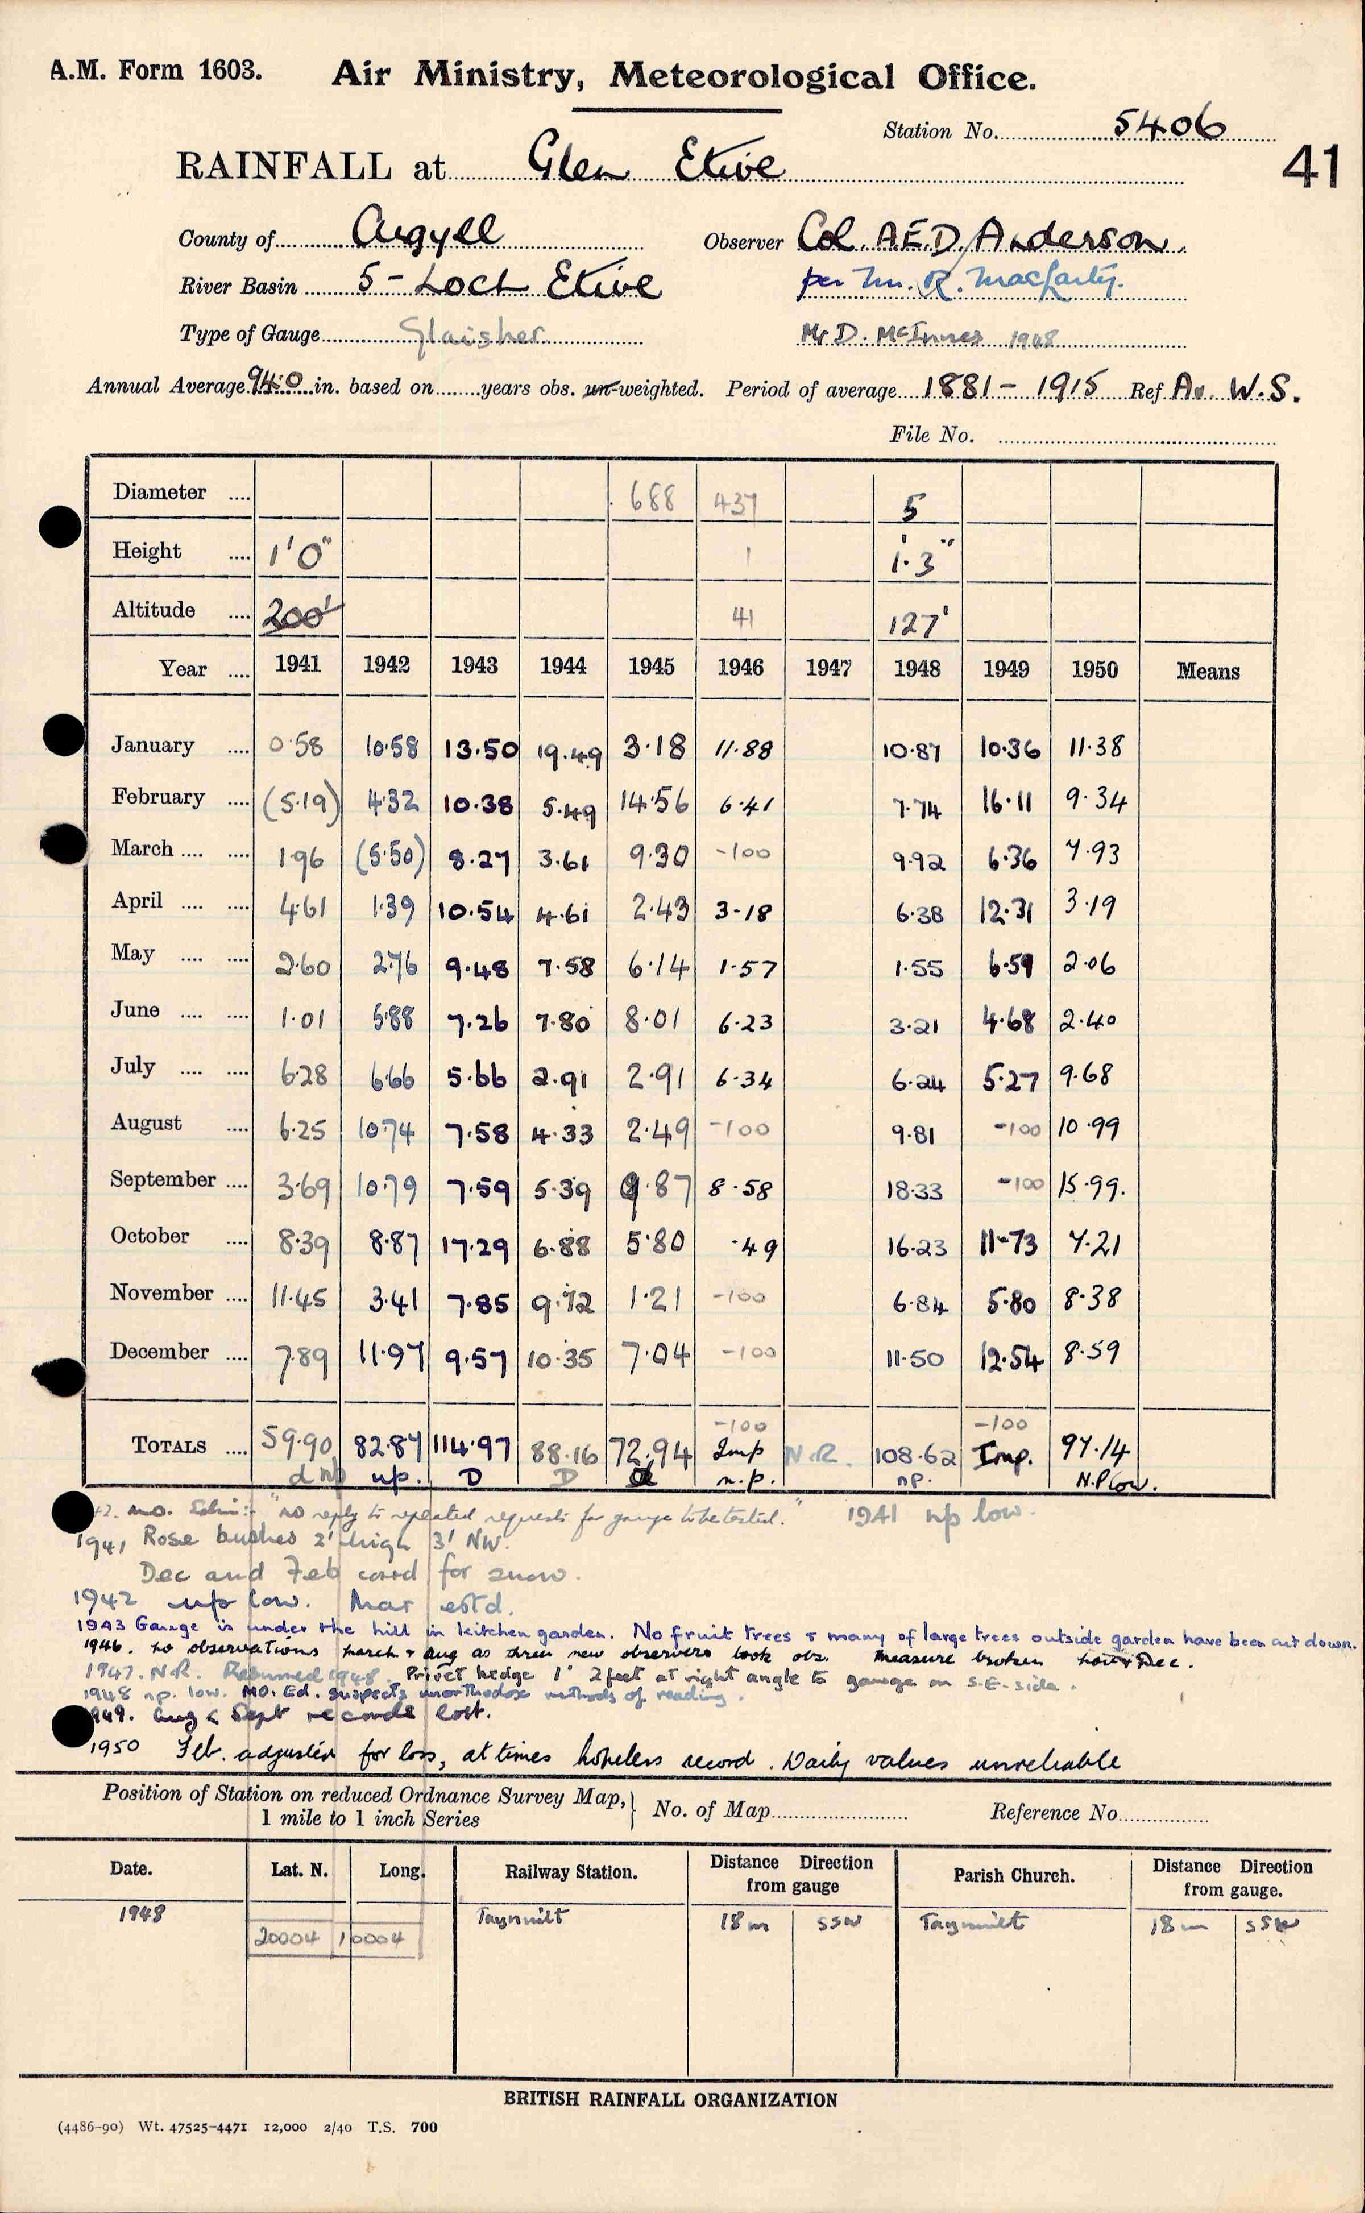 A.M. Form 1603. Air Ministry, Meteorological Office.
Station No. 5406
41
RAINFALL at Glen Etive
County of Argyll Observer Col. A.E.D. Anderson
River Basin 5 - Loch Etive per Mr. R. MacLarty.
Type of Gauge Glaisher Mr D. McInnes 1948
Annual Average 94.0 in. based on years obs. un-weighted. Period of average 1881 - 1915 Ref Av. W.S.
File No.
Diameter .... 688 437 5
Height .... 1'0" 1 1'·3"
Altitude .... 200' 41 127'
Year .... 1941 1942 1943 1944 1945 1946 1947 1948 1949 1950 Means
January .... 0·58 10·58 13·50 19·49 3·18 11·88 10·87 10·36 11·38
February .... (5·19) 4·32 10·38 5·49 14·56 6·41 7·74 16·11 9·34
March .... .... 1·96 (5·50) 8·27 3·61 9·30 -100 9·92 6·36 7·93
April .... .... 4·61 1·39 10·54 4·61 2·43 3·18 6·38 12·31 3·19
May .... .... 2·60 2·76 9·48 7·58 6·14 1·57 1·55 6·59 2·06
June .... .... 1·01 5·88 7·26 7·80 8·01 6·23 3·21 4·68 2·40
July .... .... 6·28 6·66 5·66 2·91 2·91 6·34 6·24 5·27 9·68
August .... 6·25 10·74 7·58 4·33 2·49 -100 9·81 -100 10·99
September .... 3·69 10·79 7·59 5·39 9·87 8·58 18·33 -100 15·99.
October .... 8·39 8·87 17·29 6·88 5·80 ·49 16·23 11·73 7·21
November .... 11·45 3·41 7·85 9·72 1·21 -100 6·84 5·80 8·38
December .... 7·89 11·97 9·57 10·35 7·04 -100 11·50 12·54 8·59
-100 -100
TOTALS .... 59·90 82·87 114·97 88·16 72.94 Imp N.R. 108·62 Imp. 97·14
np. D D d n.p. np. N.P. Low.
"no reply to repeated requests for gauge to be tested." 1941 np low.
1941 Rose bushes 2' high 3' NW.
Dec and Feb corrd for snow.
1942 np low. Mar estd.
1943 Gauge is under the hill in kitchen garden. No fruit trees & many of large trees outside garden have been cut down.
1946. no observations March & Aug as three new observers took obs. Measure broken Nov & Dec.
1947. N.R. Resumed 1948. Privet hedge 1' 2 feet at right angle to gauge on S.E. side.
1948 np. low. MO. Ed. suspects unorthodox methods of reading.
1949. Aug & Sept records lost.
1950 Feb. adjusted for loss, at times hopeless record. Daily values unreliable
Position of Station on reduced Ordnance Survey Map, 1 mile to 1 inch Series No. of Map Reference No.
Date. Lat. N. Long. Railway Station. Distance Direction from gauge Parish Church. Distance Direction from gauge.
1948 Taynuilt 18m SSW Taynuilt 18m SSW
20004 10004
BRITISH RAINFALL ORGANIZATION
(4486-90) Wt. 47525-4471 12,000 2/40 T.S. 700